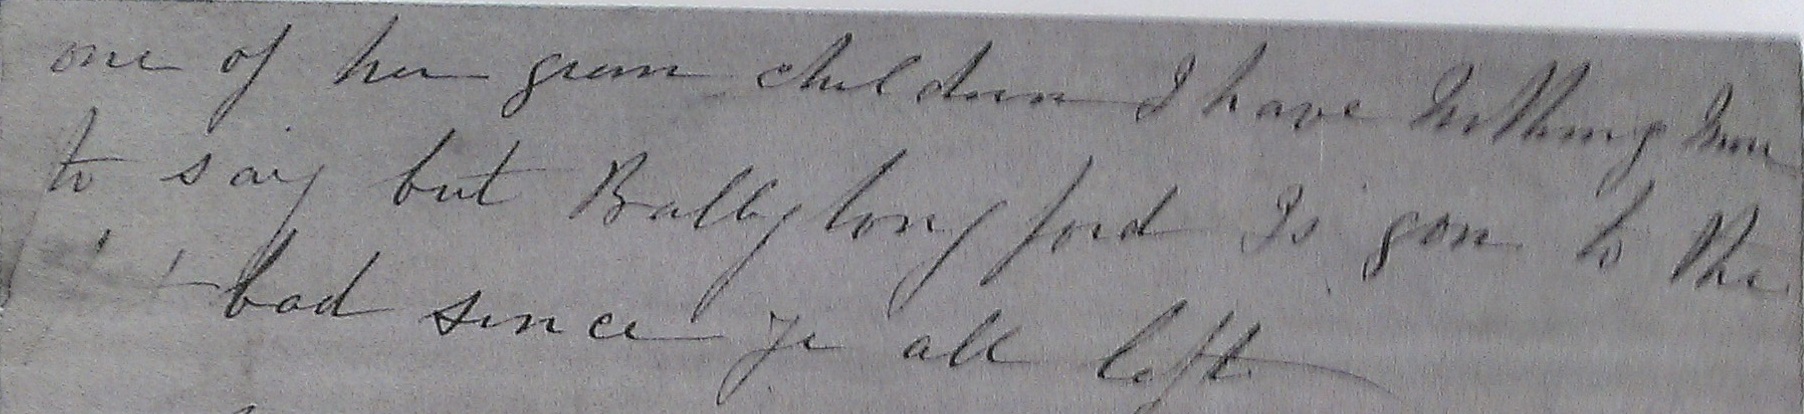 one of her grem children I have nothing mor
to say but Ballylongford Is gon to the
bad since ye all left